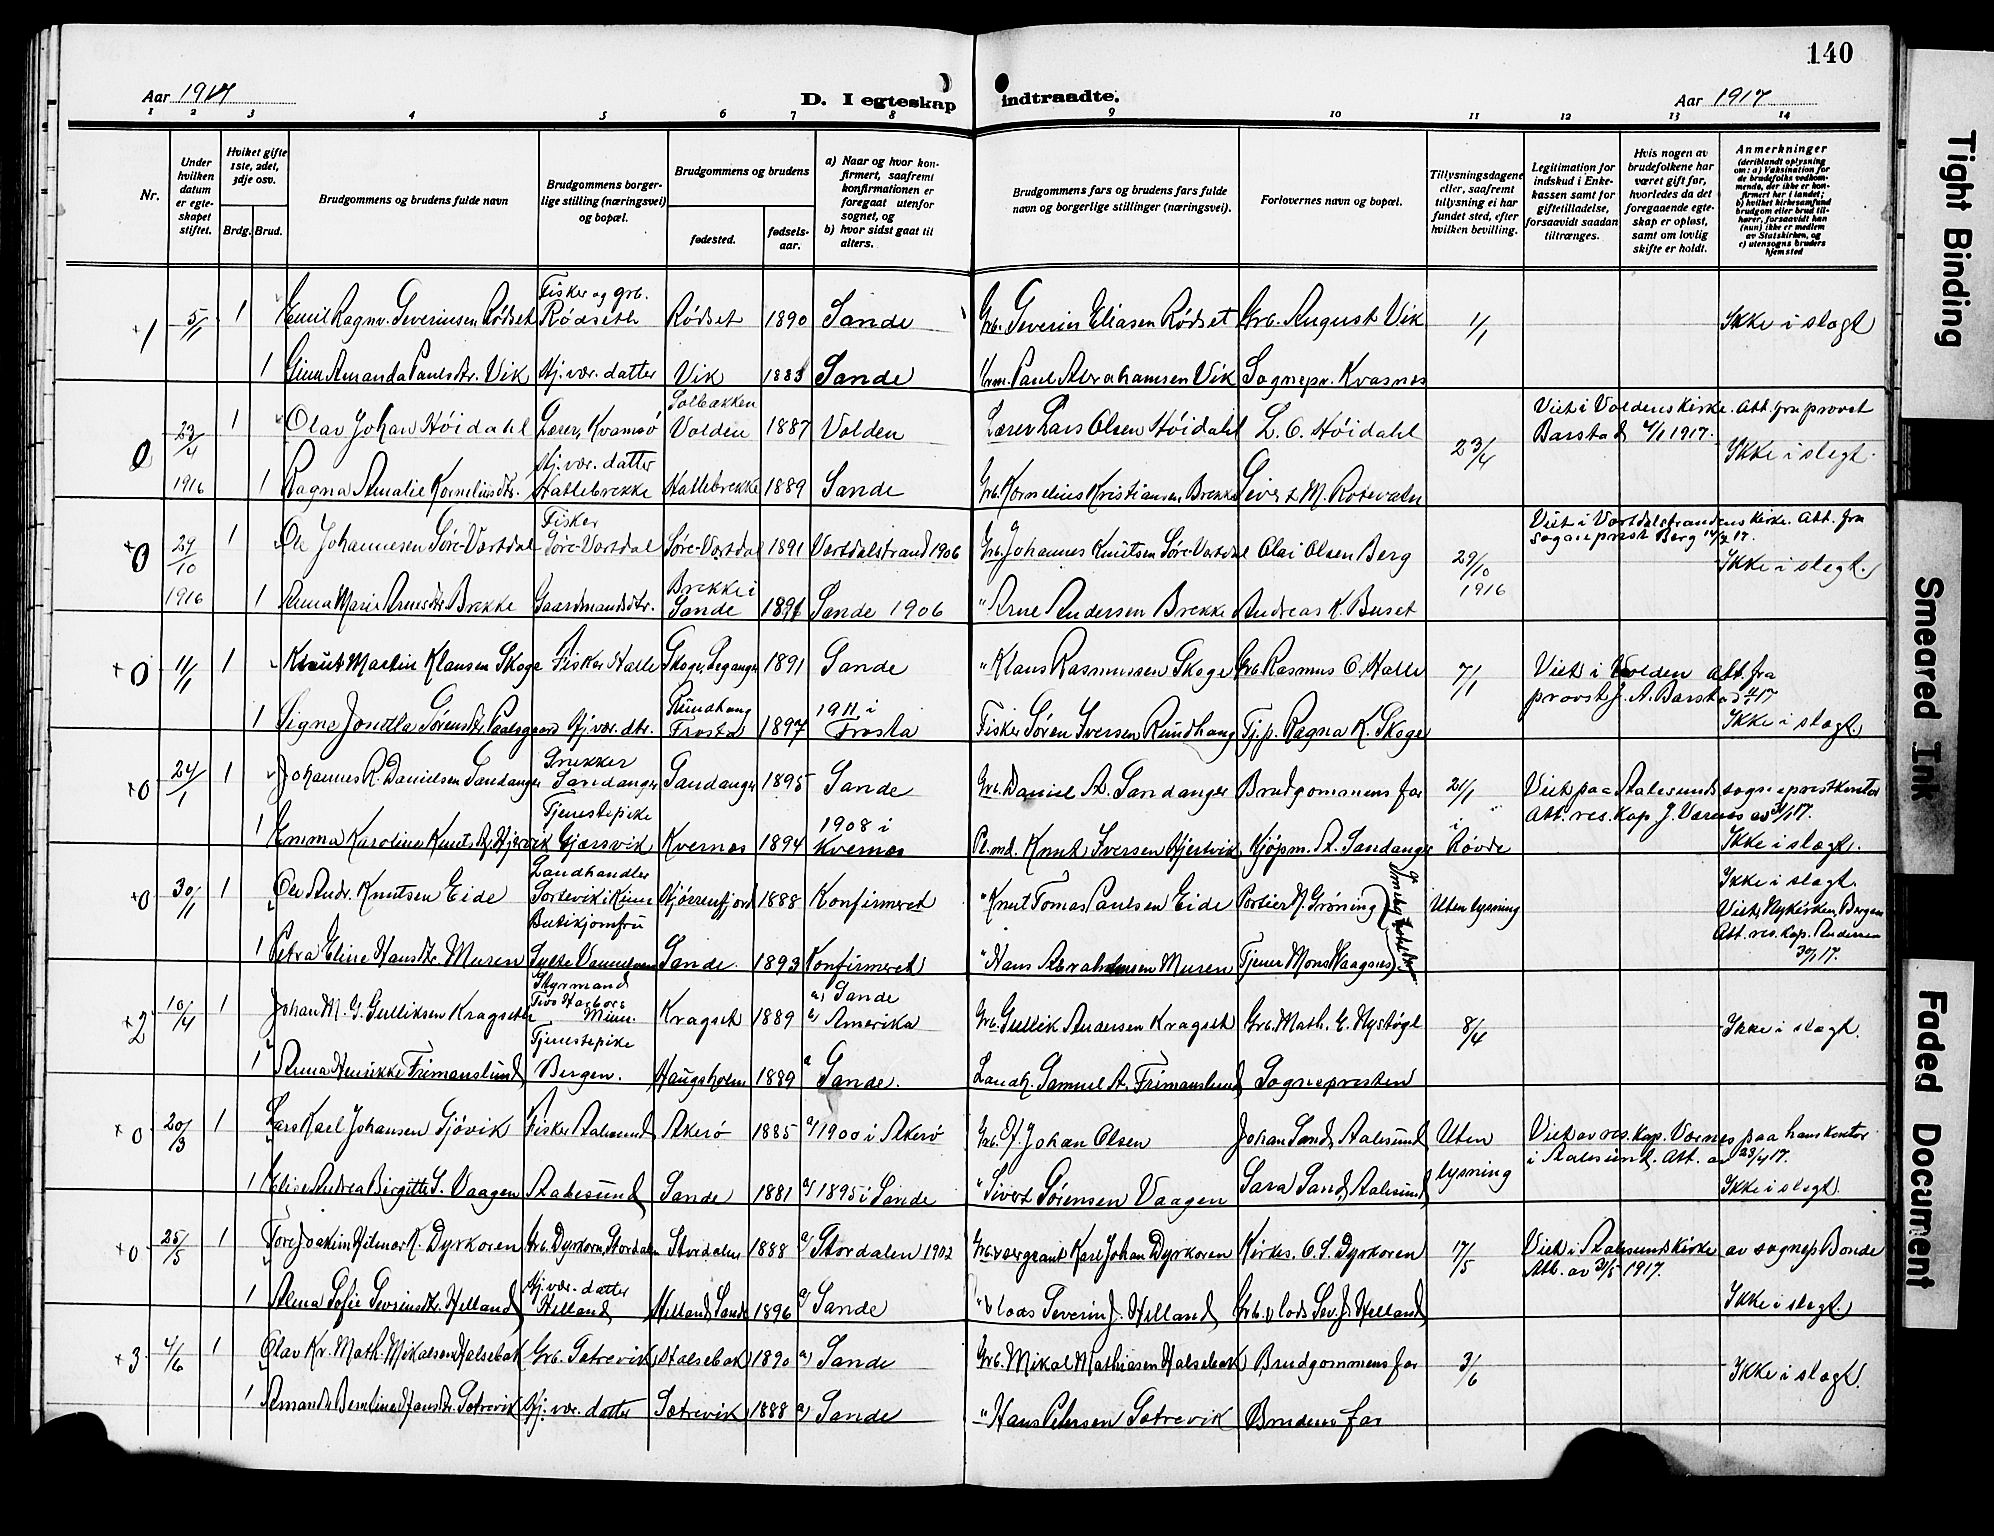 140
Aar 1917
D. I egteskap indtraadte.
Aar 1917
1 2 3 4 5 6 7 8 9 10 11 12 13 14
Nr.
Under hvilken datum er egteskapet stiftet.
Hvilket gifte 1ste, 2det, 3dje osv.
Brdg. Brud.
Brudgommens og brudens fulde navn
Brudgommens borgerlige stilling (næringsvei) og bopæl.
Brudgommens og brudens
fødested.
fødselsaar.
a) Naar og hvor konfirmert, saafremt konfirmationen er foregaat utenfor sognet, og
b) hvor sidst gaat til alters.
Brudgommens fars og brudens fars fulde navn og borgerlige stillinger (næringsvei).
Forlovernes navn og bopæl.
Tillysningsdagene eller, saafremt tillysning ei har fundet sted, efter hvilken bevilling.
Legitimation for indskud i Enkekassen samt for giftetilladelse, forsaavidt saadan tiltrænges.
Hvis nogen av brudefolkene har været gift før, hvorledes da det foregaaende egteskap er opløst, samt om lovlig skifte er holdt.
Anmerkninger (deriblandt oplysning om: a) Vaksination for de brudefolks vedkommende, der ikke er konfirmert her i landet; b) hvilket kirkesamfund brudgom eller brud tilhører, forsaavidt han (hun) ikke er medlem av Statskirken, og c) utensogns bruders hjemsted
+1 5/1 1 Emil Ragnv. Severinsen Rødset Fisker og grb. Rødseth Rødset 1890 Sande Grb. Severin Eliasen Rødset Grb. August Vik 1/1 Ikke i slegt
1 Gina Amanda Paulsdtr. Vik Hj. vær. datter Vik 1883 Sande Paul Abrahamsen Vik Sognepr. Kvasnes
0 23/4 1916 1 Olav Johan Høidahl Lærer, Kvamsø Solbakken Volden 1887 Volden Lærer Lars Olsen Høidahl L. O. Høidahl 23/4 Viet i Voldens kirke. Att. fra provst Barstad 1917. Ikke i slegt.
1 Ragna Amalie Korneliusdtr. Hj. vær. datter Hallebrekke Hallebrekke 1889 Sande Grb. Kornelius Kristiansen Brekke Sivert M. Rotevatn
+0 29/10 1916 1 Ole Johannesen Søre-Vartdal Fisker Søre-Vartdal Søre-Vartdal 1891 Vartdalstrand 1906 Grb. Johannes Knutsen Søre-Vartdal Olai Olsen Berg 29/10 1916 Viet i Vartdalstrandens kirke. Att. fra sogneprest Berg 17. Ikke i slegt.
1 Anna Marie Arnesdtr. Brekke Gaardmandsdtr. Brekke i Sande 1891 Sande 1906 " Arne Andersen Brekke Andreas K. Buset
+0 11/1 1 Knut Martin Klausen Skoge Fisker Halle Skoge, Leganger 1891 Sande " Klaus Rasmussen Skoge Grb. Rasmus O. Halle 7/1 Viet i Volden att. fra provst J. A. Barstad 17 Ikke i slegt.
1 Signe Sørensdtr. Hj. vær. dtr. Rundhaug Frosta 1897 1911 i Frosta Fisker Søren Iversen Rundhaug Tj.p. Ragna K. Skoge
+0 24/1 1 Johannes R. Danielsen Sandanger Snekker Sandanger Sandanger 1895 Sande Grb. Daniel A. Sandanger Brudgommens far 21/1 i Røvde Viet paa Aalesunds sogneprestkontor Att. res. kap. J. Værnes av 31/1 17. Ikke i slegt.
1 Emma Karoline Knutsdtr. Tjenestepike Gjærsvik Kvernes 1894 1908 i Kvernes Pl.md. Knut Iversen Kjøpm. A. Sandanger
+0 30/1 1 Ole Andr. Knutsen Eide Landhandler Hjørenfjord 1888 Konfirmeret " Knut Tomas Paulsen Eide Portier N. Grøning Uten lysning Ikke i slegt. Viet i Nykirken, Bergen Att. res. kap. 30/1 17.
1 Petra Eline Hansdtr. Muren Butikjomfru Sande. 1893 Konfirmeret " Hans Abrahamsen Muren Tjener Mons Waagsnes
+2 10/4 1 Johan M. G. Gulliksen Kragseth Styrmand Two Harbors Minn. Kragset 1889 a) Sande b) Amerika Grb. Gullik Andersen Kragset Grb. Math. E. Nystøgl 8/4 Ikke i slegt.
1 Anna Henrikke Frimanslund Tjenestepike Bergen. Haugsholm 1889 a Sande. Landh. Samuel A. Frimanslund Sognepresten
+0 20/3 1 Lars Karl Johansen Gjøvik Fisker Aalesund Akerø 1885 a) 1900 i Akerø Grb. Johan Olsen Johan Sand, Aalesund Uten lysning Viet av res. kap. Værnes paa hans kontor i Aalesund. Att. av 23/4 17. Ikke i slegt.
1 Elise Andrea Birgitte S. Vaagen Aalesund Sande 1881 a) 1895 i Sande " Sivert Sørensen Vaagen Sara Sand, Aalesund
+0 25/5 1 Tore Joakim Hilmar K. Dyrkoren Grb. Dyrkorn, Stordalen Stordalen 1888 a) Stordalen 1902 Grb. Karl Johan Dyrkoren Kirkes. O. S. Dyrkoren 17/5 Viet i Aalesunds kirke av sognep Bonde Att. av 31/5 1917. Ikke i slegt.
1 Alma Sofie Severinsdtr. Helland Hj. vær. datter Helland Helland, Sande 1896 a) Sande " & lods Severin J. Helland Grb. & lods Sev. J. Helland
+3 4/6 1 Olav Kr. Math. Mikalsen Halsebak Grb. Sætrevik Halsebak 1890 a) Sande Grb. Mikal Mathiasen Halsebak Brudgommens far 3/6 Ikke i slegt.
1 Amanda Hansdtr. Sætrevik Hj. vær. datter Sætrevik 1888 a) Sande " Hans Petersen Sætrevik Brudens far
Tight Binding
Smeared Ink
Faded Document